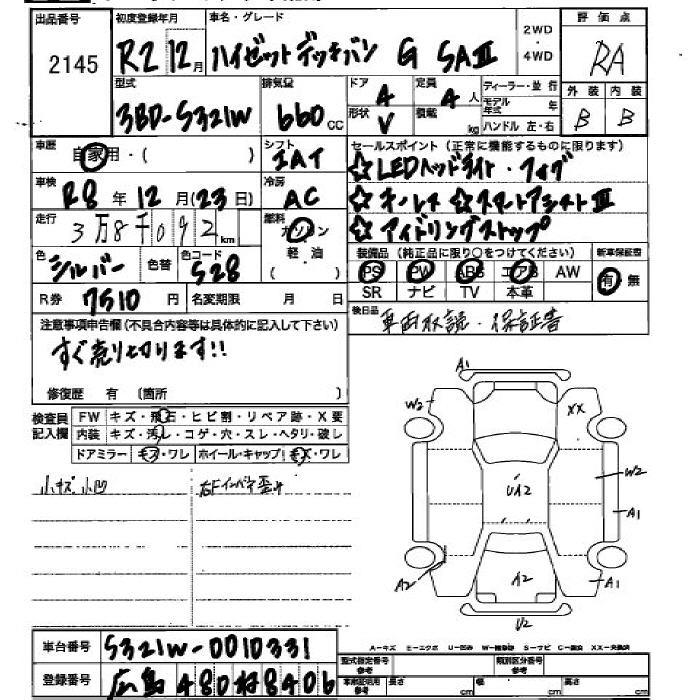 出品番号 初度登録年月 車名・グレード 2WD 評価点
2145 R2 12月 ハイゼットデッキバン G SAⅢ ・ RA
4WD
型式 排気量 ドア 定員 ディーラー・並 行 外装 内装
3BD-S321W 660cc 4 4人 モデル年式 年 B B
形状 積載 ハンドル 左・右
V kg
車歴 自家用・( ) シフト IAT セールスポイント(正常に機能するものに限ります)
☆LEDヘッドライト・フォグ
車検 R8年12月(23日) 冷房 AC ☆キーレス ☆スマートアシストⅢ
走行 3万8千092km 燃料 ガソリン・軽・油( ) ☆アイドリングストップ
色 シルバー 色替 色コード S28 装備品(純正品に限り○をつけてください) 新車保証書
PS PW ABS エアB AW 有・無
R券 7510円 名変期限 月 日 SR ナビ TV 本革
注意事項申告欄(不具合内容等は具体的に記入して下さい) 後日品 車両取説・保証書
すぐ売り切ります!!
修復歴 有 〔箇所 〕
検査員記入欄 FW キズ・飛石・ヒビ割・リペア跡・X要
内装 キズ・汚れ・コゲ・穴・スレ・ヘタリ・破レ
ドアミラー キズ・ワレ ホイール・キャップ キズ・ワレ
小キズ 小凹 右Fインパネ歪み
A1
W2 XX
UA2 W2
A1
A2 A2 A1
U2
車台番号 S321W-0010331 A−キズ E−エクボ U−凹み W−補修跡 S−サビ C−腐食 XX−交換済
型式指定番号 参考 類別区分番号 参考
登録番号 広島480村8406 車庫証明用 参考 長さ cm 幅 cm 高さ cm